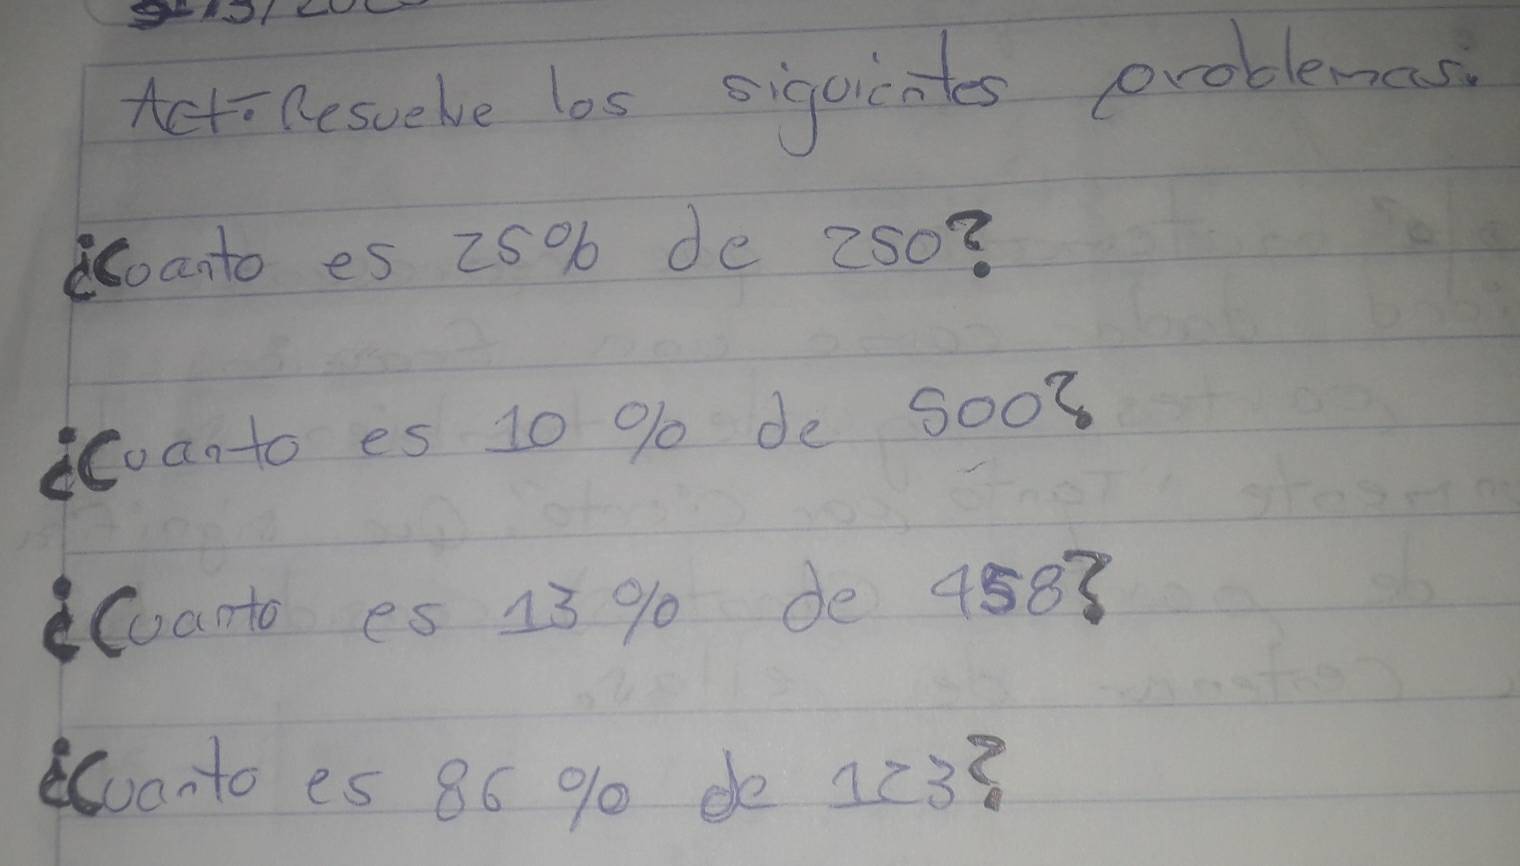 Act: Resuelve los siguientes problemas.
¿Cuanto es 25% de 250?
¿Cuanto es 10% de 500?
¿Cuanto es 13% de 458?
¿Cuanto es 86% de 123?